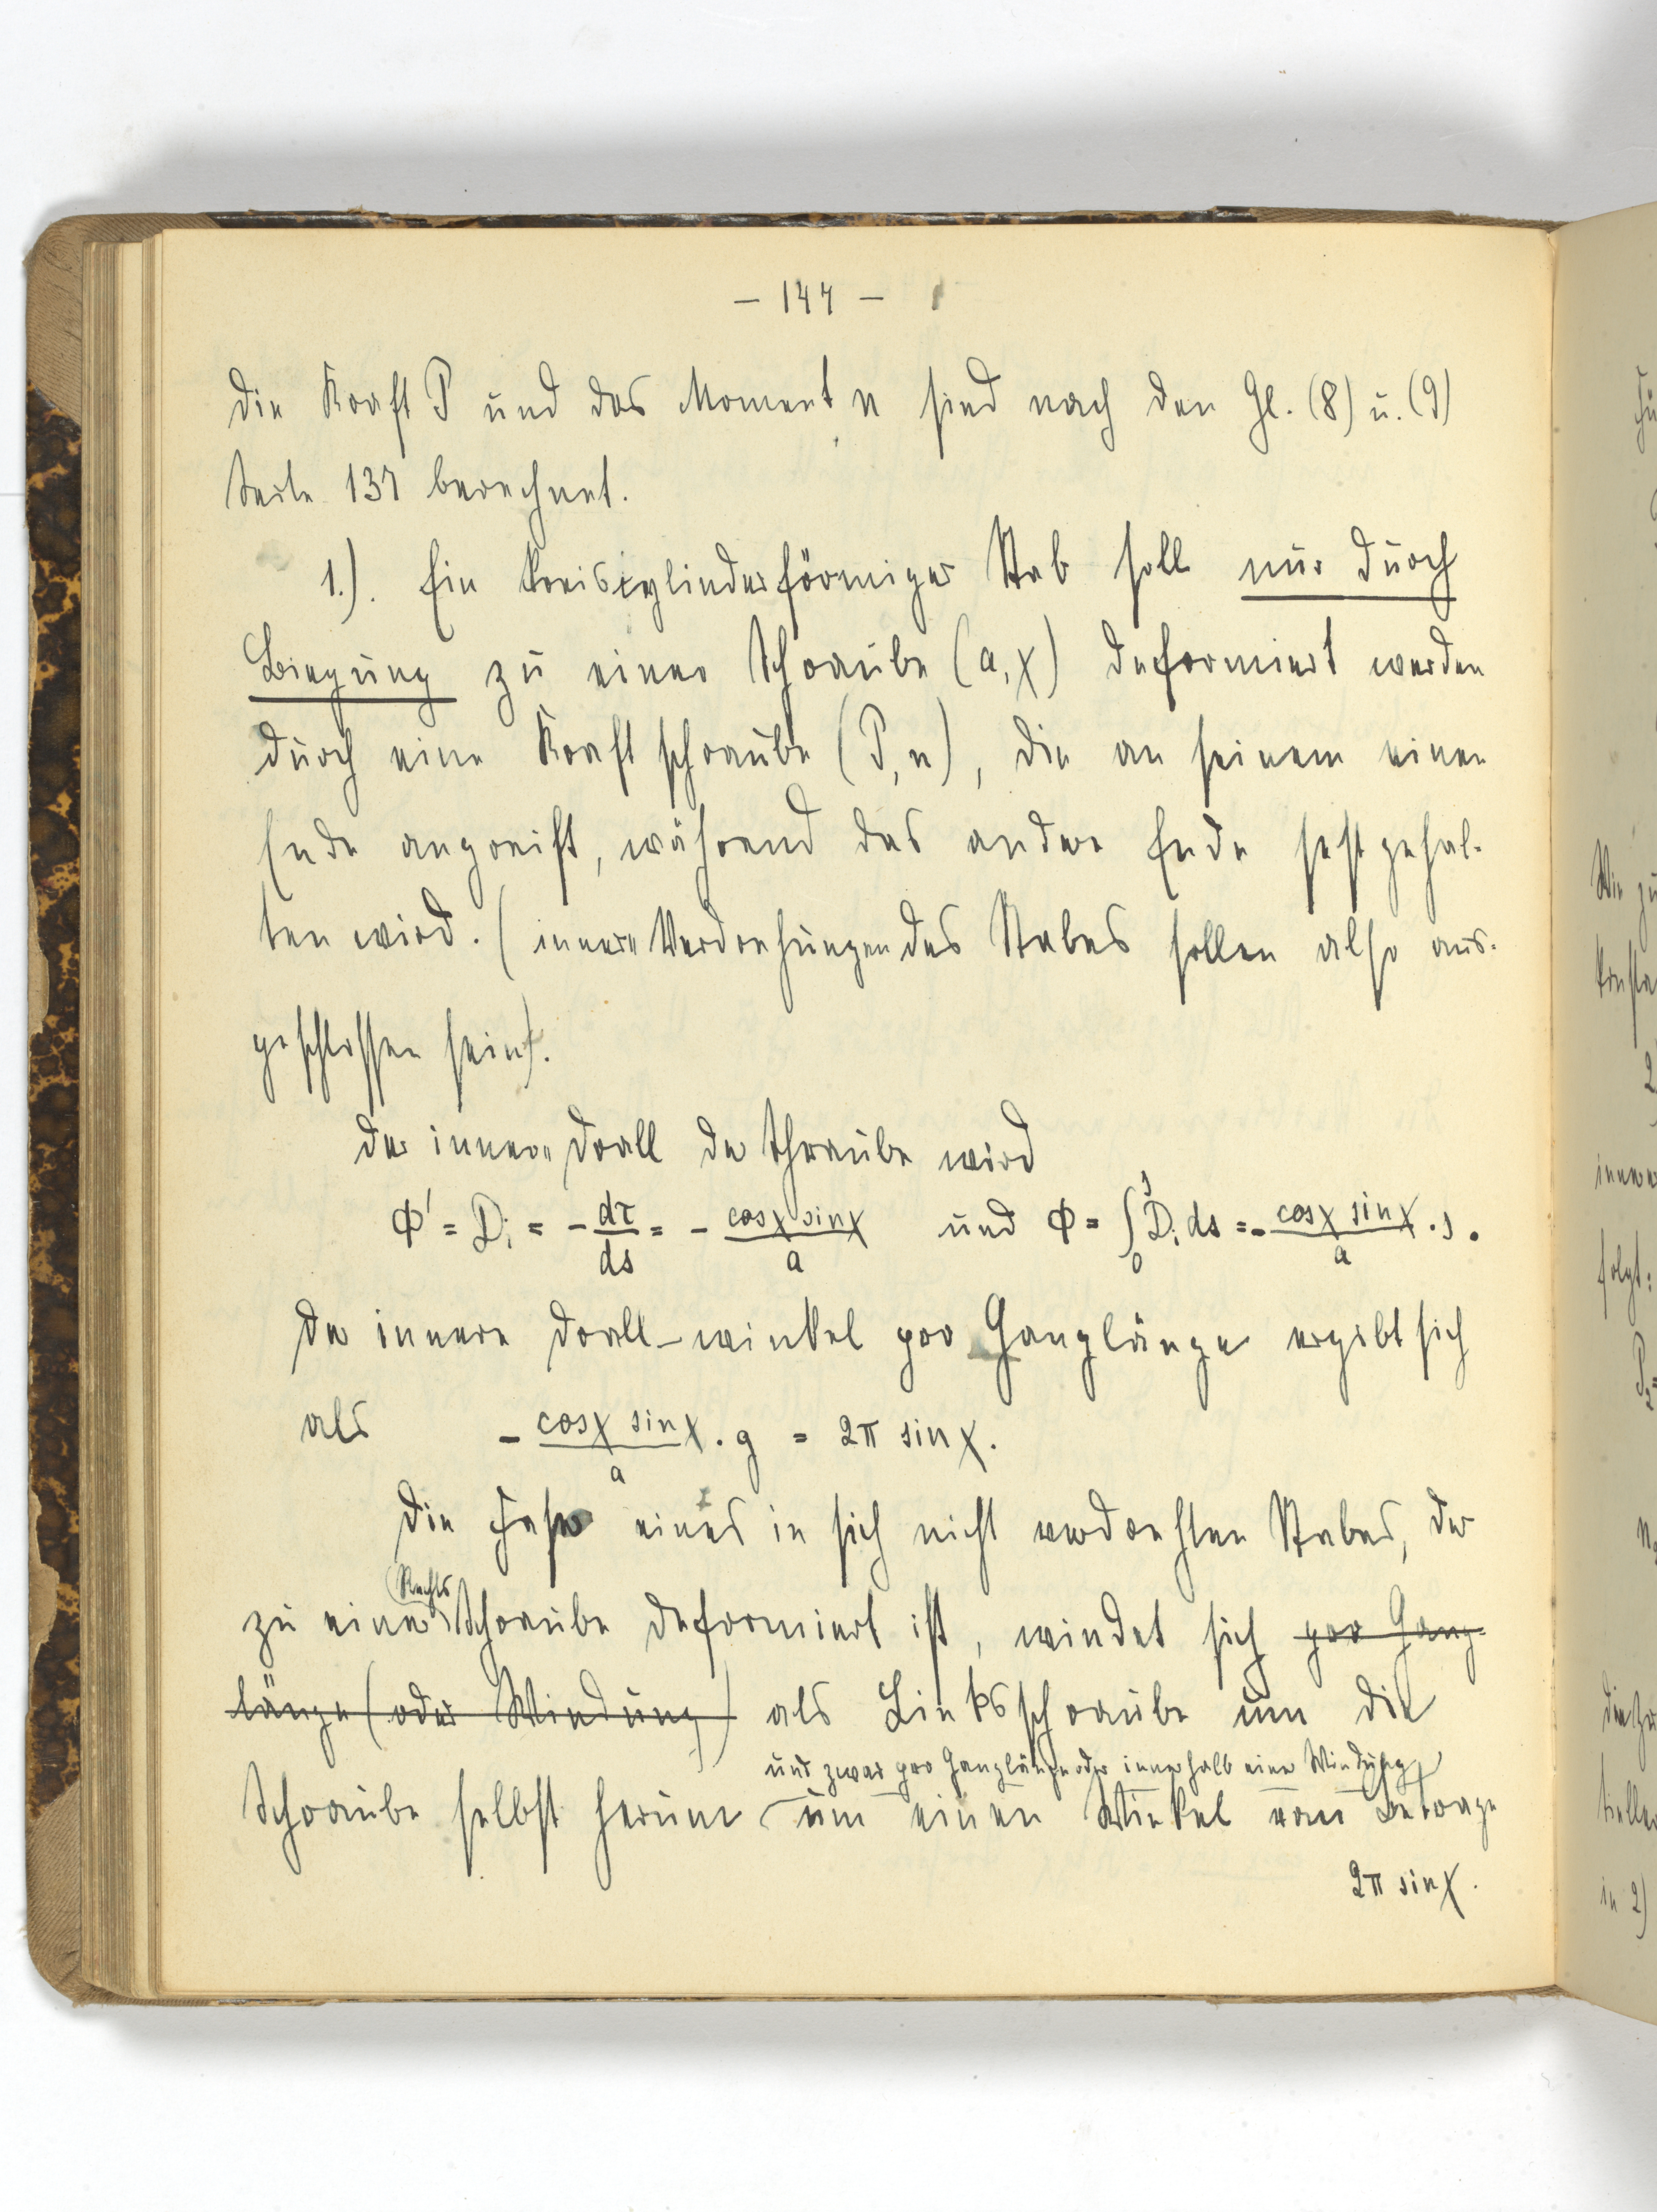 - 144 -
Die Kraft P und das Moment n sind nach den Gl. (8) u. (9)
Seite 137 berechnet.
1.). Ein kreiscylinderförmiger Stab soll nur durch
Biegung zu einer Schraube (a, χ) deformiert werden
durch eine Kraftschraube (P, n), die an seinem einen
Ende angreift, während das andere Ende festgehal-
ten wird. (innere Verdrehungen des Stabes sollen also aus-
geschlossen sein).
Der innere Drall der Schraube wird
Φ' = Dᵢ = - dτ/ds = - cosχ sinχ / a und Φ = ∫₀ˢ Dᵢ ds = - cosχ sinχ / a · s.
Der innere Drall-winkel pro Ganglänge ergibt sich
als - cosχ sinχ / a · g = 2π sinχ.
Die Faser eines in sich nicht verdrehten Stabes, der
zu einer Rechts Schraube deformiert ist, windet sich pro Gang-
länge (oder Windung) als Linksschraube um die
und zwar pro Ganglänge oder innerhalb einer Windung
Schraube selbst herum um einen Winkel vom Betrage
2π sinχ.